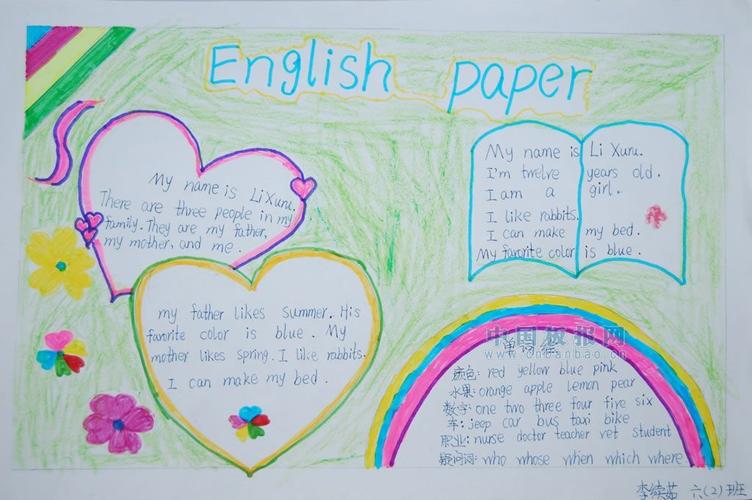 English paper
My name is Li Xuru.
There are three people in my
family. They are my father,
my mother, and me.
my father likes summer. His
favorite color is blue. My
mother likes spring. I like rabbits.
I can make my bed.
My name is Li Xuru.
I'm twelve years old.
I am a girl.
I like rabbits.
I can make my bed.
My favorite color is blue.
中国板报网
www.cnbanbao.cn
颜色: red yellow blue pink
水果: orange apple lemon pear
数字: one two three four five six
车: jeep car bus taxi bike
职业: nurse doctor teacher vet student
疑问词: who whose when which where
李 六(2)班